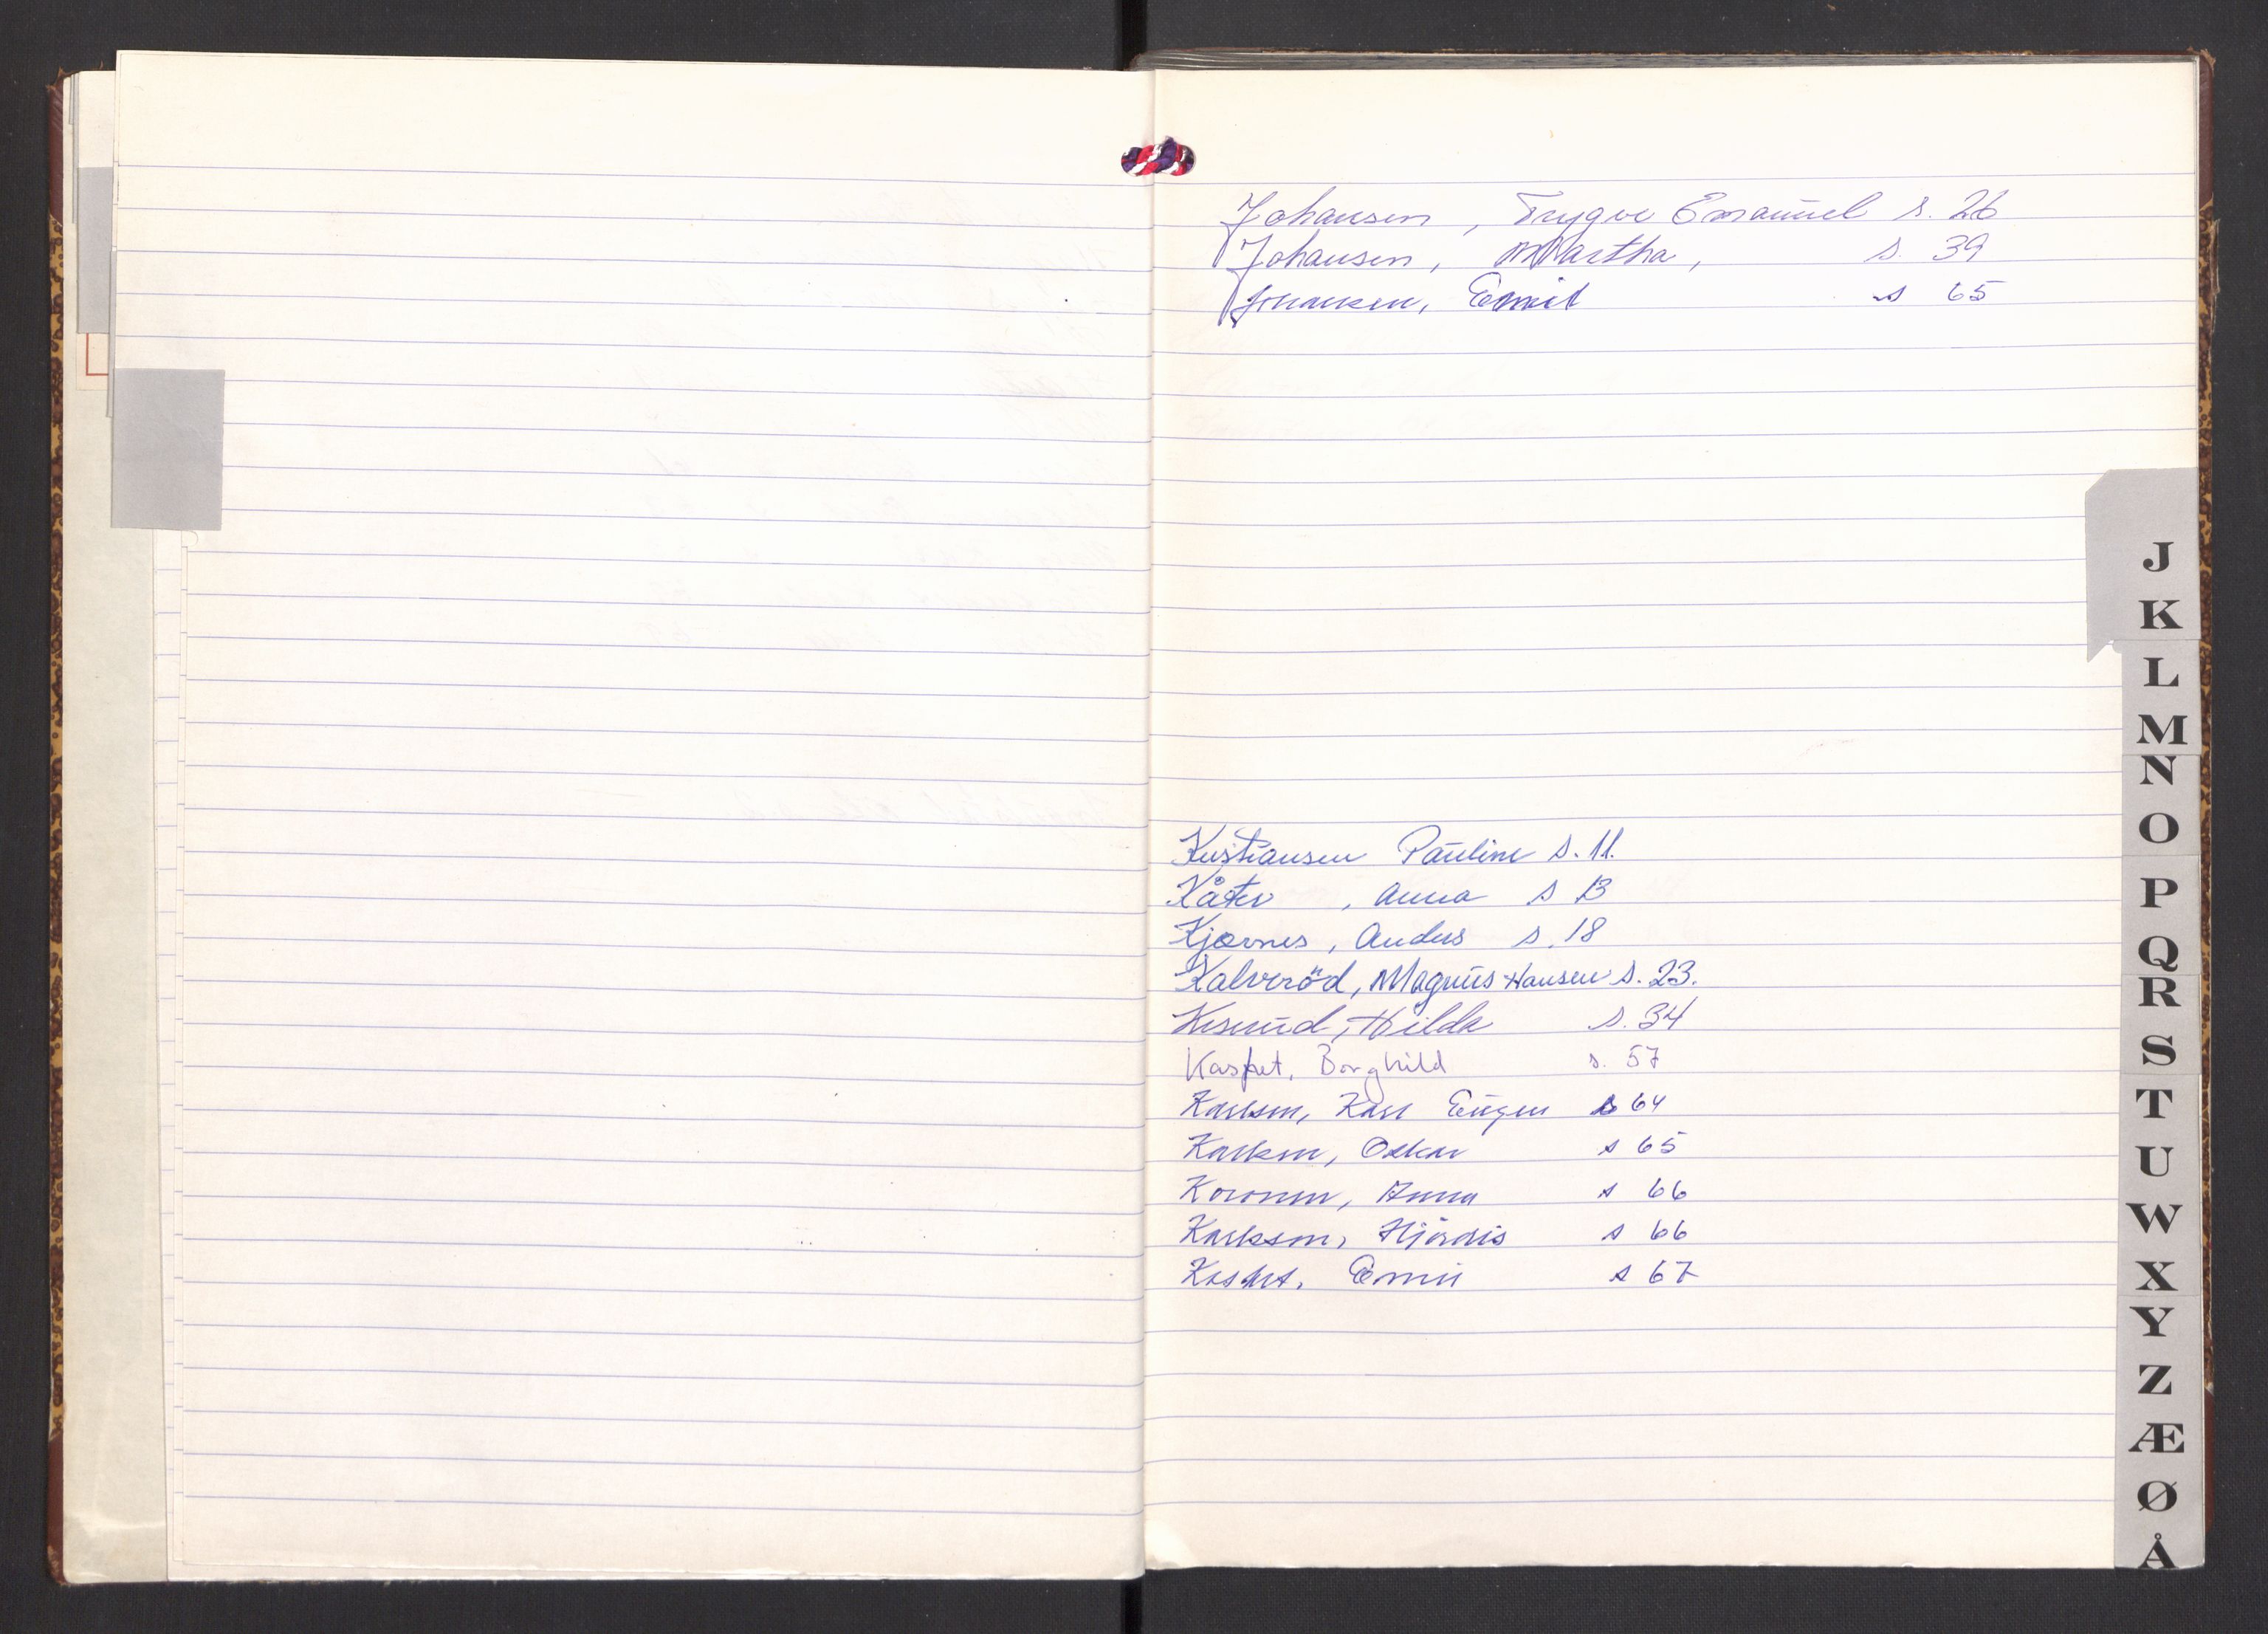 Johansen, Trygve Emanuel s. 26
Johansen, Martha, s. 39
Johansen, Emil s 65
Kristiansen Pauline s. 11.
Kåter, Anna s 13
Kjærnes, Anders s. 18
Kalveröd, Magnus Hansen s. 23.
Hilda s. 34
Kaspet, Borghild s. 57
Karlsen, Karl Eugen s 64
Karlsen, Oskar s 65
Anna s 66
Karlsson, Hjördis s 66
s 67
J
K
L
M
N
O
P
Q
R
S
T
U
W
X
Y
Z
Æ
Ø
Å